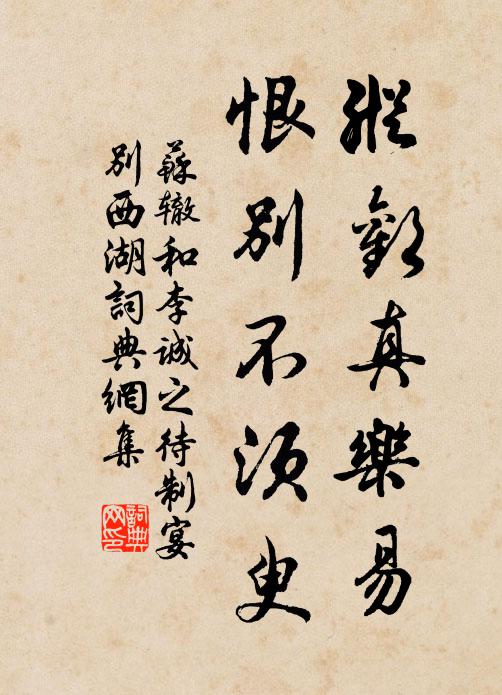 縱歡真樂易
恨別不須臾
蘇轍和李誠之待制宴
別西湖詞典網集
詞典
网印